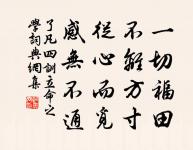 一切福田
不離方寸
從心而覓
感無不通
了凡四訓立命之
學詞典網集